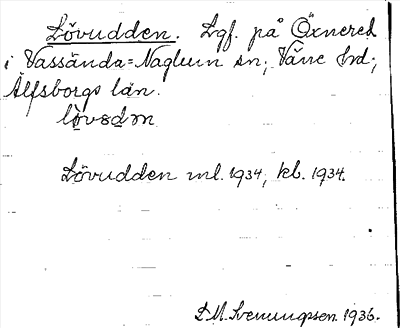 Lövudden. Lgf. på Öxnered
i Vassända=Naglum sn; Väne hd;
Älfsborgs län.
lövudden ml. 1934, kb. 1934.
S. M. Svenungsson 1936.